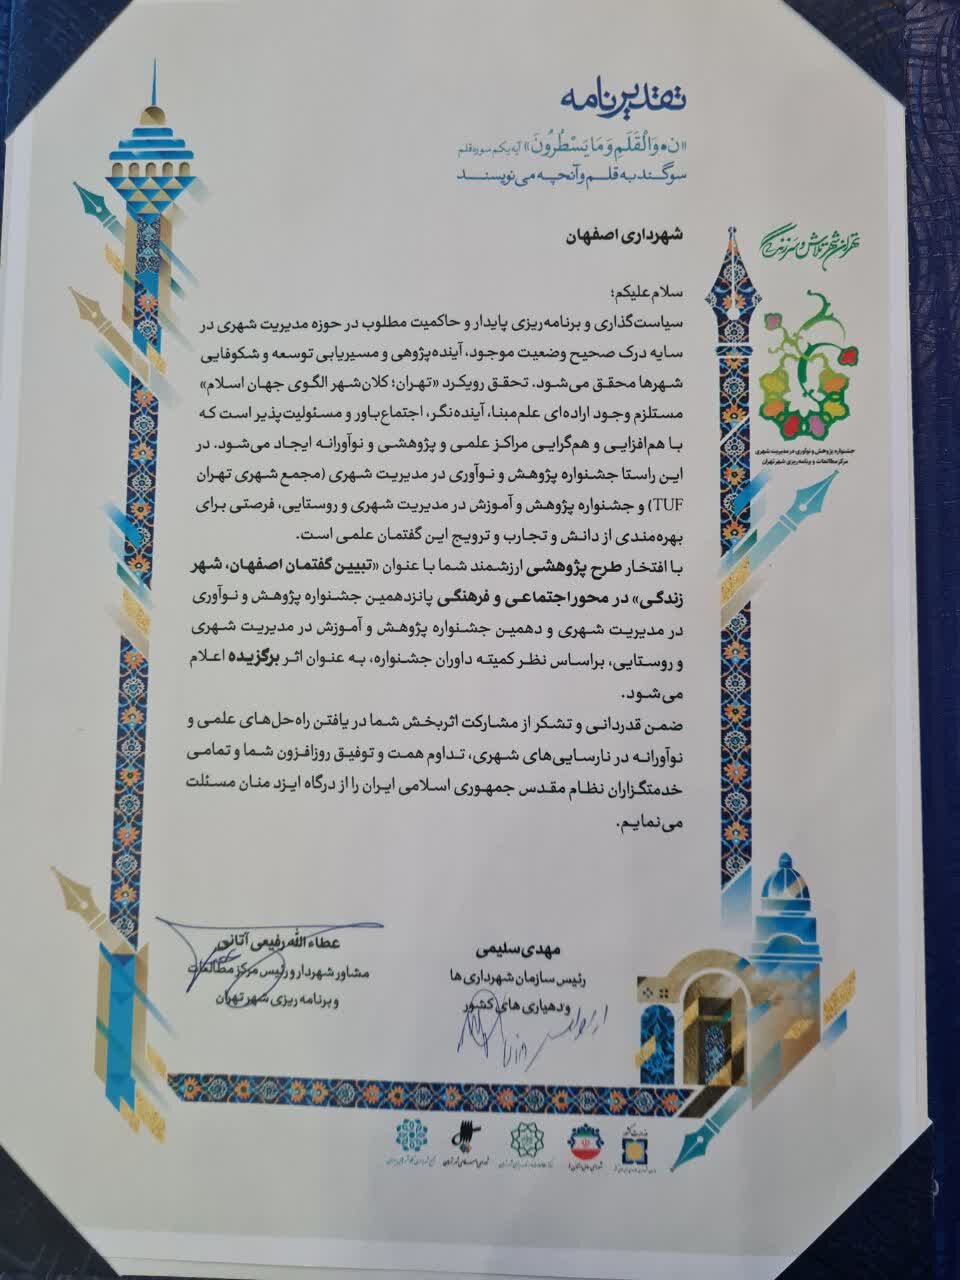 تقدیرنامه
«ن وَالْقَلَمِ وَمَا يَسْطُرُونَ» آیه یکم سوره قلم
سوگند به قلم و آنچه می نویسند
شهرداری اصفهان
تهران شهر تلاش و سرزندگی
جشنواره پژوهش و نوآوری در مدیریت شهری
مرکز مطالعات و برنامه ریزی شهر تهران
سلام علیکم؛
سیاست‌گذاری و برنامه‌ریزی پایدار و حاکمیت مطلوب در حوزه مدیریت شهری در
سایه درک صحیح وضعیت موجود، آینده‌پژوهی و مسیریابی توسعه و شکوفایی
شهرها محقق می‌شود. تحقق رویکرد «تهران؛ کلان‌شهر الگوی جهان اسلام»
مستلزم وجود اراده‌ای علم‌مبنا، آینده‌نگر، اجتماع‌باور و مسئولیت‌پذیر است که
با هم‌افزایی و هم‌گرایی مراکز علمی و پژوهشی و نوآورانه ایجاد می‌شود. در
این راستا جشنواره پژوهش و نوآوری در مدیریت شهری (مجمع شهری تهران
TUF) و جشنواره پژوهش و آموزش در مدیریت شهری و روستایی، فرصتی برای
بهره‌مندی از دانش و تجارب و ترویج این گفتمان علمی است.
با افتخار طرح پژوهشی ارزشمند شما با عنوان «تبیین گفتمان اصفهان، شهر
زندگی» در محور اجتماعی و فرهنگی پانزدهمین جشنواره پژوهش و نوآوری
در مدیریت شهری و دهمین جشنواره پژوهش و آموزش در مدیریت شهری
و روستایی، براساس نظر کمیته داوران جشنواره، به عنوان اثر برگزیده اعلام
می‌شود.
ضمن قدردانی و تشکر از مشارکت اثربخش شما در یافتن راه‌حل‌های علمی و
نوآورانه در نارسایی‌های شهری، تداوم همت و توفیق روزافزون شما و تمامی
خدمتگزاران نظام مقدس جمهوری اسلامی ایران را از درگاه ایزد منان مسئلت
می‌نمایم.
مهدی سلیمی
رئیس سازمان شهرداری ها
و دهیاری های کشور
عطاءالله رفیعی آتانی
مشاور شهردار و رئیس مرکز مطالعات
و برنامه ریزی شهر تهران